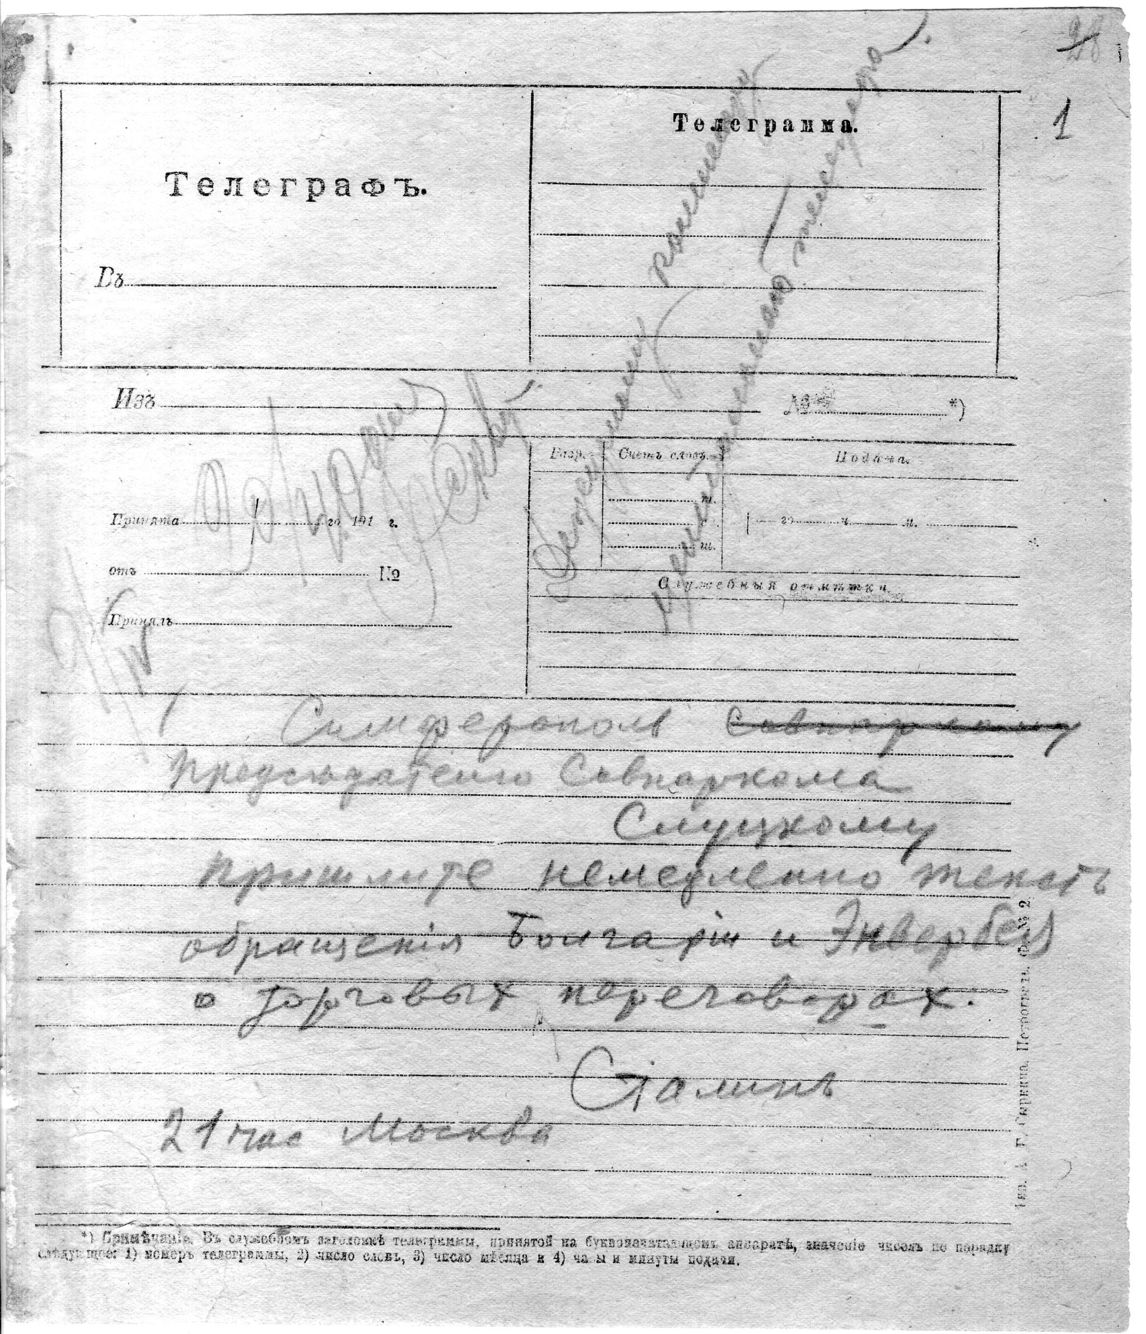 28
1
Телеграфъ.
Въ
Телеграмма.
Изъ
№ *)
Дежурному комиссару
центральнаго телеграфа.
Разр.
Счетъ словъ.
Подача.
Принята го 191 г.
го ч. м.
отъ №
Служебныя отмѣтки.
Принялъ
IV
Симферополь Совнаркому
Председателю Совнаркома
Слуцкому
Пришлите немедленно текстъ
обращенія Болгаріи и Энвербея
о торговых переговорах.
Сталинъ
21 час Москва
*) Примѣчаніе. Въ служебномъ заголовкѣ телеграммы, принятой на буквопечатающемъ аппаратѣ, значеніе чиселъ по порядку
слѣдующее: 1) номеръ телеграммы, 2) число словъ, 3) число мѣсяца и 4) часы и минуты подачи.